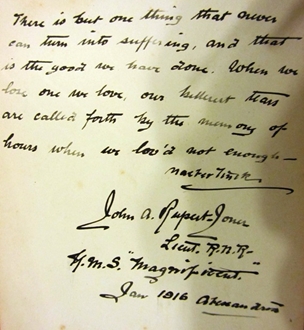 There is but one thing that never
can turn into suffering, and that
is the good we have done. When we
lose one we love, our bitterest tears
are called forth by the memory of
hours when we lov'd not enough—
Maeterlinck
John A. Rupert-Jones
Lieut. R.N.R—
H.M.S "Magnificent."
Jan 1916 Alexandria